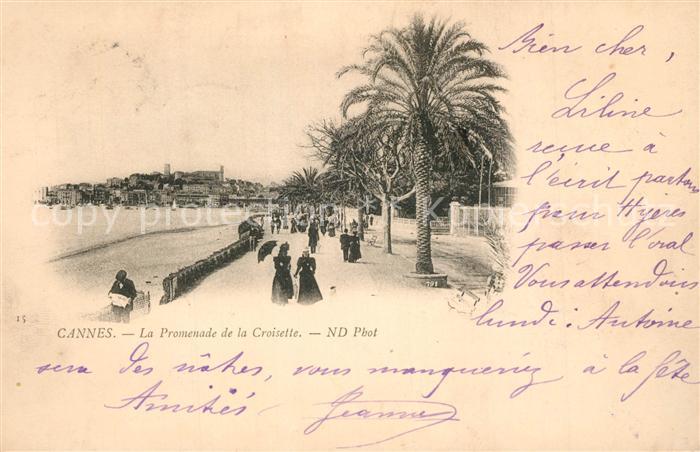 Bien cher,
Liline
reçue à
l'écrit partons
pour Hyères
passer l'oral
Vous attendons
lundi. Antoine
15
CANNES. — La Promenade de la Croisette. — ND Phot
sera des nôtres, vous manqueriez à la fête
Amitiés Jeanne
copyright